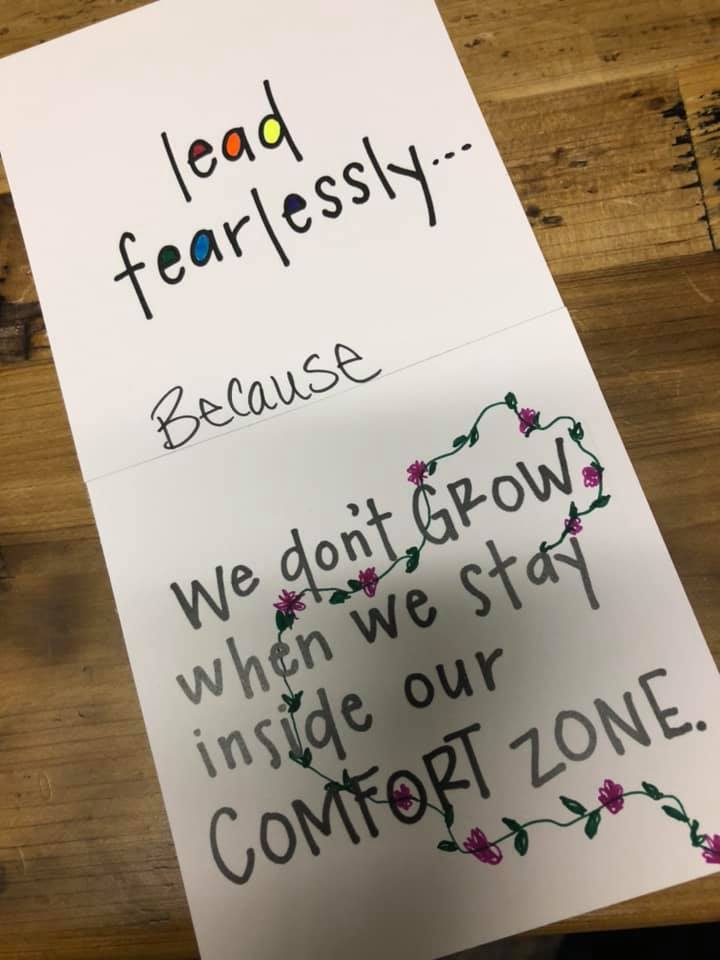 lead
fearlessly...
Because
We don't GROW
when we stay
inside our
COMFORT ZONE.